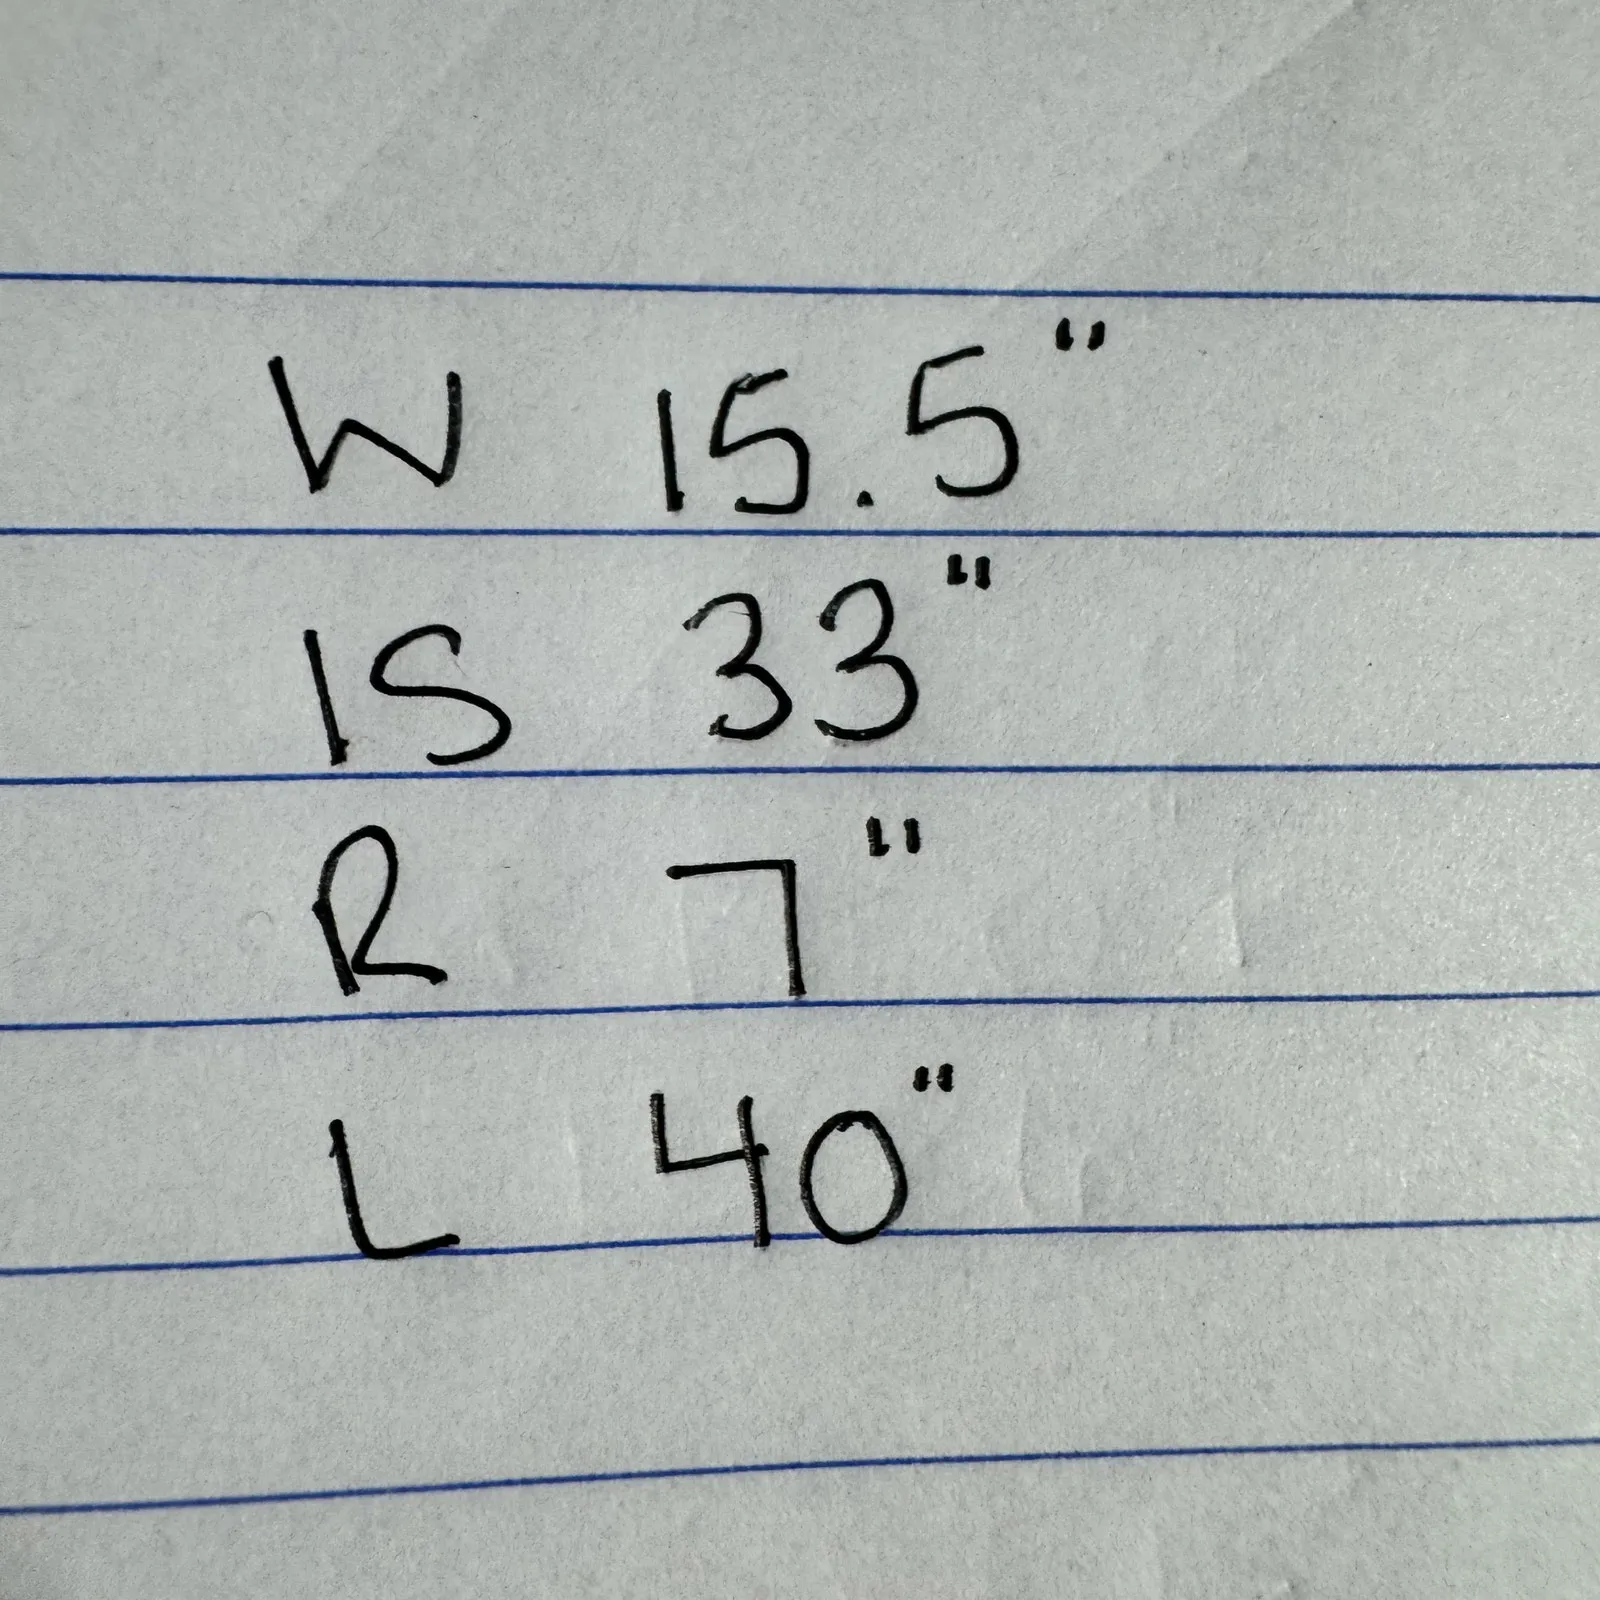 W 15.5"
IS 33"
R 7"
L 40"